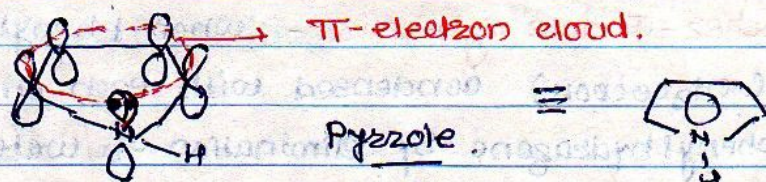 π-electron cloud.
N
H
Pyrrole
≡
N
H